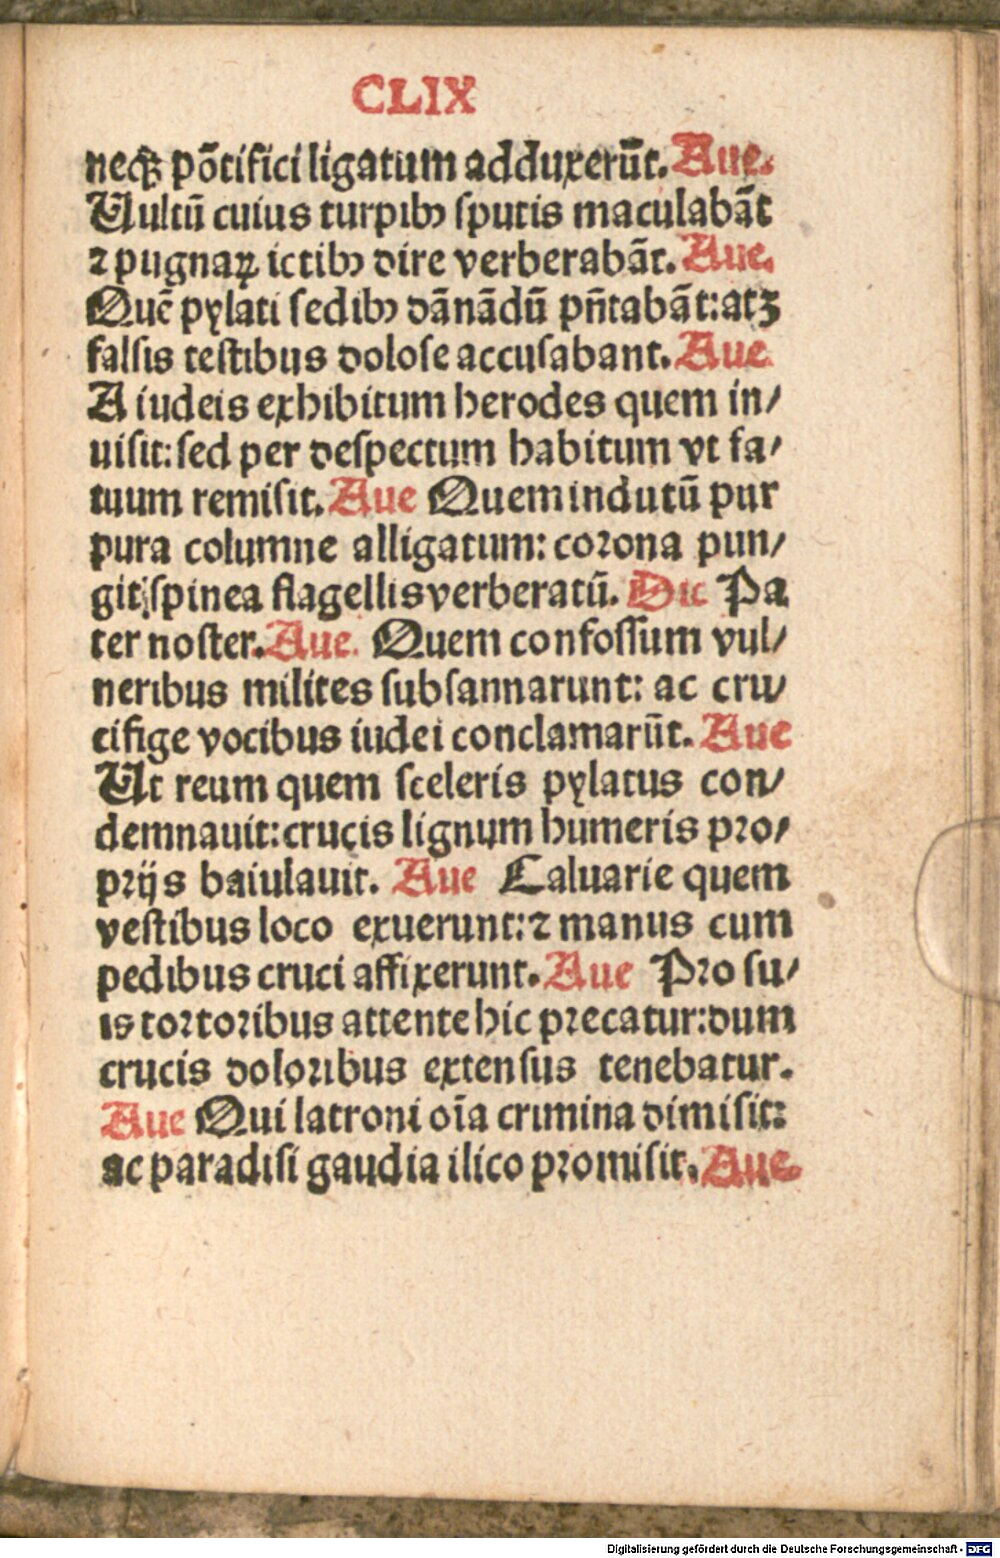 CLIX
neqꝫ põtifici ligatum adduxerūt. Aue.
Uultū cuius turpibꝰ ſputis maculabāt
⁊ pugnaꝝ ictibꝰ dire verberabāt. Aue.
Quē pylati ſedibꝰ dānādū pñtabāt: atꝫ
falſis teſtibus doloſe accuſabant. Aue
A iudeis exhibitum herodes quem in/
uiſit: ſed per deſpectum habitum vt fa/
tuum remiſit. Aue Quem indutū pur
pura columne alligatum: corona pun/
git ſpinea flagellis verberatū. Dic Pa
ter noſter. Aue. Quem confoſſum vul/
neribus milites ſubſannarunt: ac cru/
cifige vocibus iudei conclamarūt. Aue
Ut reum quem ſceleris pylatus con/
demnauit: crucis lignum humeris pro/
prijs baiulauit. Aue Caluarie quem
veſtibus loco exuerunt: ⁊ manus cum
pedibus cruci affixerunt. Aue Pro ſu/
is tortoribus attente hic precatur: dum
crucis doloribus extenſus tenebatur.
Aue Qui latroni oīa crimina dimiſit:
ac paradiſi gaudia ilico promiſit. Aue.
Digitalisierung gefördert durch die Deutsche Forschungsgemeinschaft - DFG